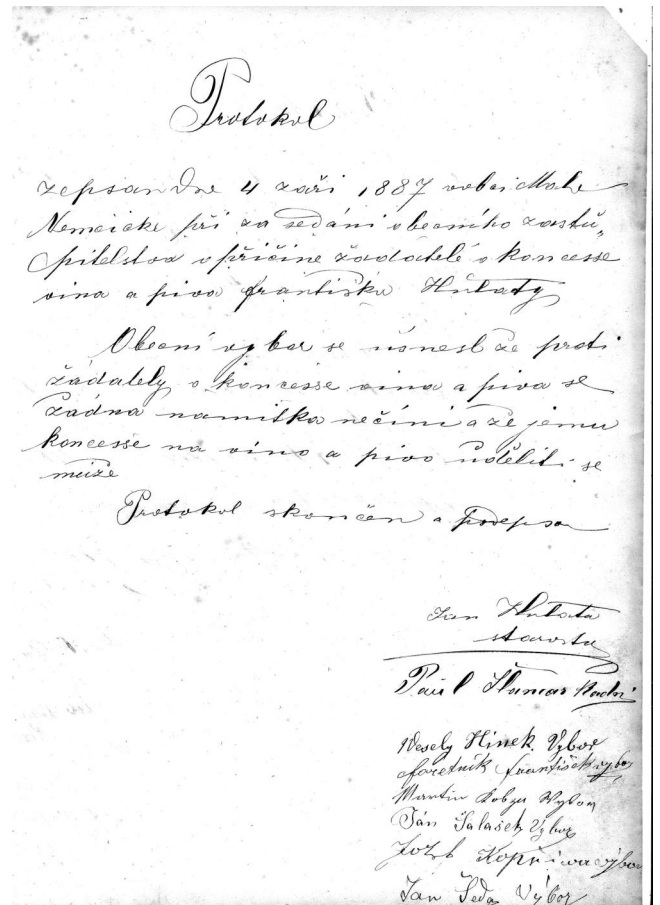 Protokol
zepsan dne 4 září 1887 vobci Male
Nemčičke při za sedáni obecního zastu„
pitelstva v příčině žádatelé o koncesse
vina a piva františka Hulaty
Obecní vybor se usnesl že proti
žádately o koncesse vina a piva se
žádna namitka nečíní a že jemu
koncesse na vino a pivo uděliti se
muže
Protokol skončen a podepsa
Jan Hulata
starosta
Paul Radni
Wesely Hinek. Vybor
františek vybor
Martin Kobza Wybor
Ján Salašek Vybor
Jozef Kopřiwa výbor
Jan Šeda Výbor